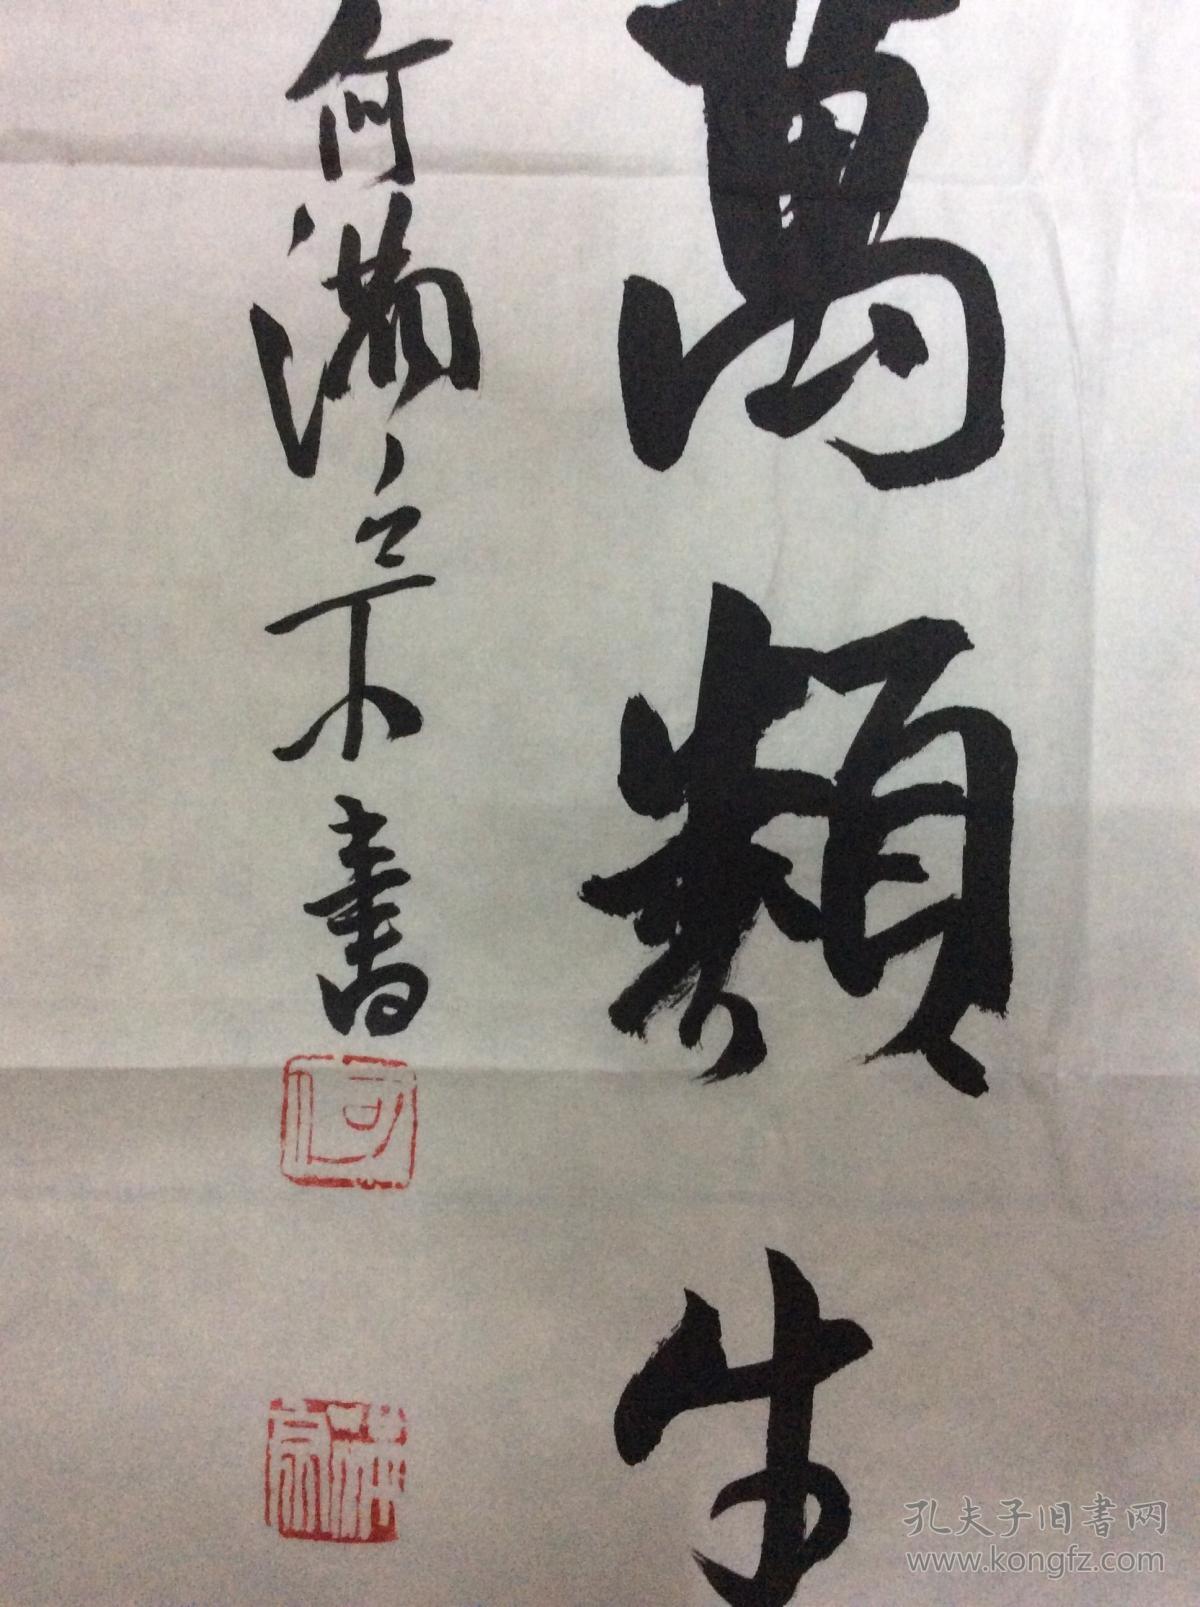 萬類生
何滿宗書
何
滿宗
孔夫子旧书网
www.kongfz.com